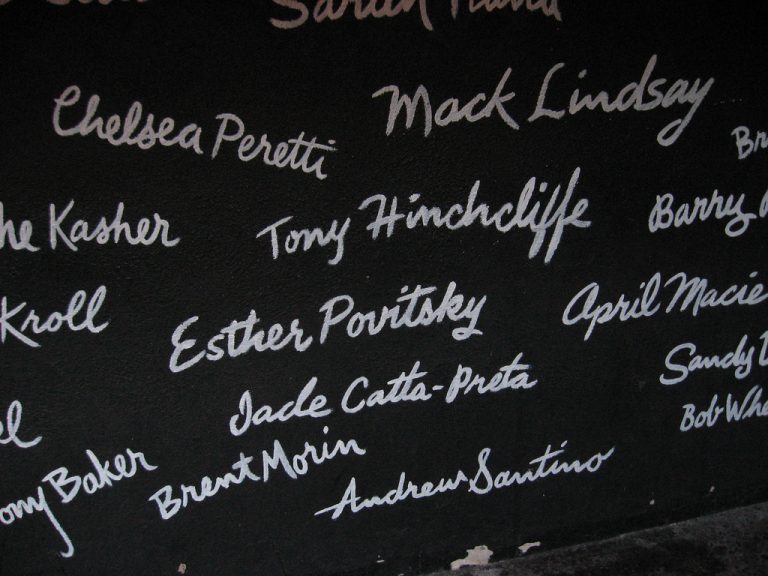 Chelsea Peretti
Mack Lindsay
he Kasher
Tony Hinchcliffe
Barry
Kroll
Esther Povitsky
April Macie
Jade Catta-Preta
Sandy
ony Baker
Brent Morin
Andrew Santino
Bob